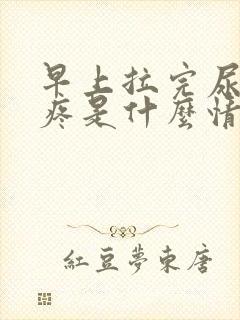 早上拉完尿
疼是什麼情
紅豆夢東唐